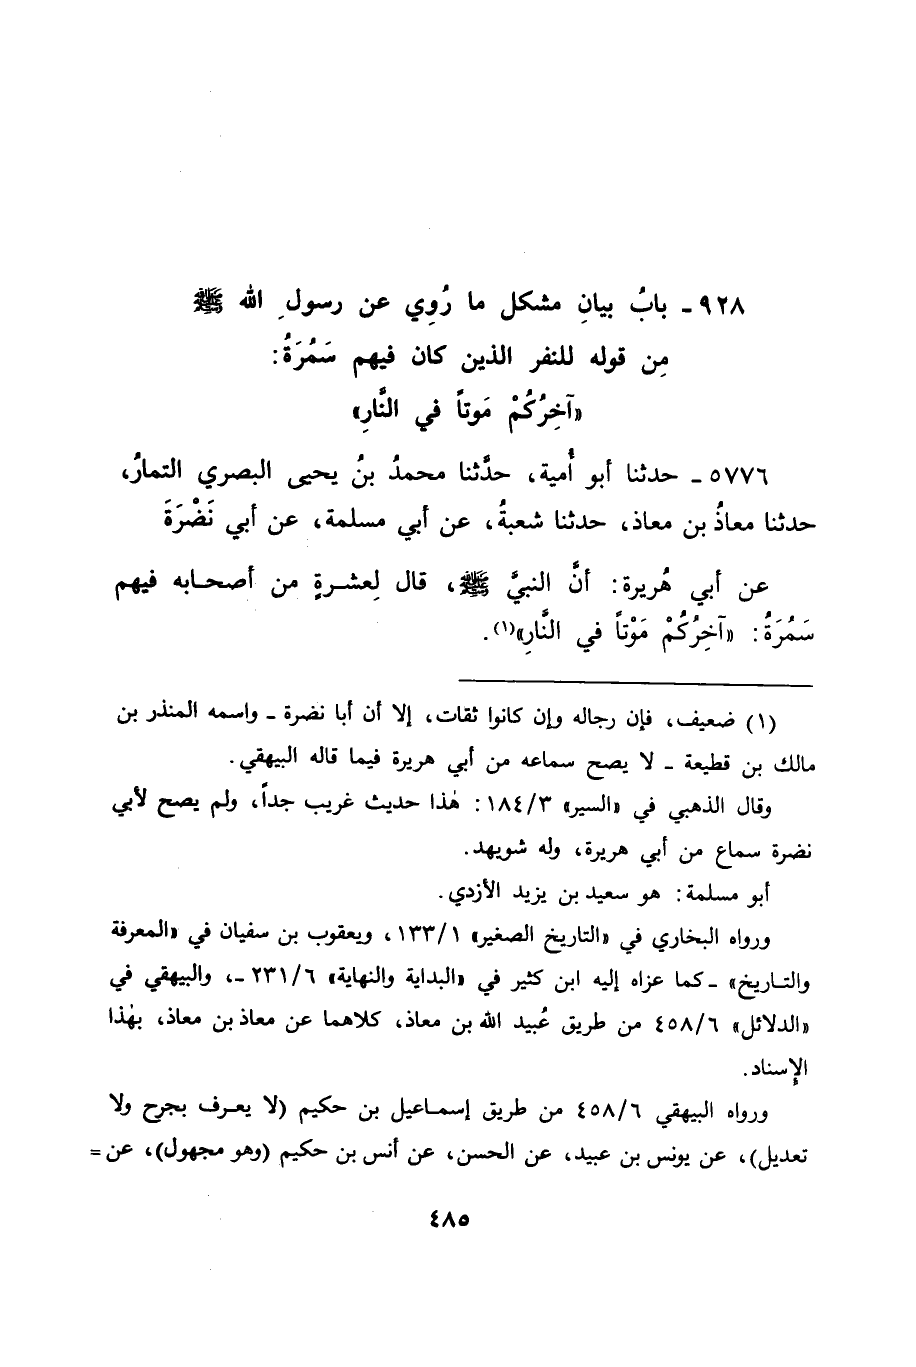 ٩٢٨ ـ بابُ بيانِ مشكل ما رُوِي عن رسولِ الله ﷺ
مِن قوله للنفر الذين كان فيهم سَمُرَةُ:
«آخِرُكُمْ مَوتاً في النَّارِ»
٥٧٧٦ ـ حدثنا أبو أُمية، حدَّثنا محمدُ بنُ يحيى البصري التمارُ،
حدثنا معاذُ بن معاذ، حدثنا شعبةُ، عن أبي مسلمة، عن أبي نَضْرَةَ
عن أبي هُريرة: أنَّ النبيَّ ﷺ، قال لِعشـرةٍ من أصحـابه فيهم
سَمُرَةُ: «آخِرُكُمْ مَوْتاً في النَّارِ»(١).
(١) ضعيف، فإن رجاله وإن كانوا ثقات، إلا أن أبا نضرة ـ واسمه المنذر بن
مالك بن قطيعة ـ لا يصح سماعه من أبي هريرة فيما قاله البيهقي.
وقال الذهبي في «السير» ١٨٤/٣: هٰذا حديث غريب جداً، ولم يصح لأبي
نضرة سماع من أبي هريرة، وله شويهد.
أبو مسلمة: هو سعيد بن يزيد الأزدي.
ورواه البخاري في «التاريخ الصغير» ١٣٣/١، ويعقوب بن سفيان في «المعرفة
والتـاريخ» ـ كما عزاه إليه ابن كثير في «البداية والنهاية» ٢٣١/٦ ـ، والبيهقي في
«الدلائل» ٤٥٨/٦ من طريق عُبيد الله بن معاذ، كلاهما عن معاذ بن معاذ، بهٰذا
الإِسناد.
ورواه البيهقي ٤٥٨/٦ من طريق إسمـاعيل بن حكيم (لا يعـرف بجرح ولا
تعديل)، عن يونس بن عبيد، عن الحسن، عن أنس بن حكيم (وهو مجهول)، عن =
٤٨٥